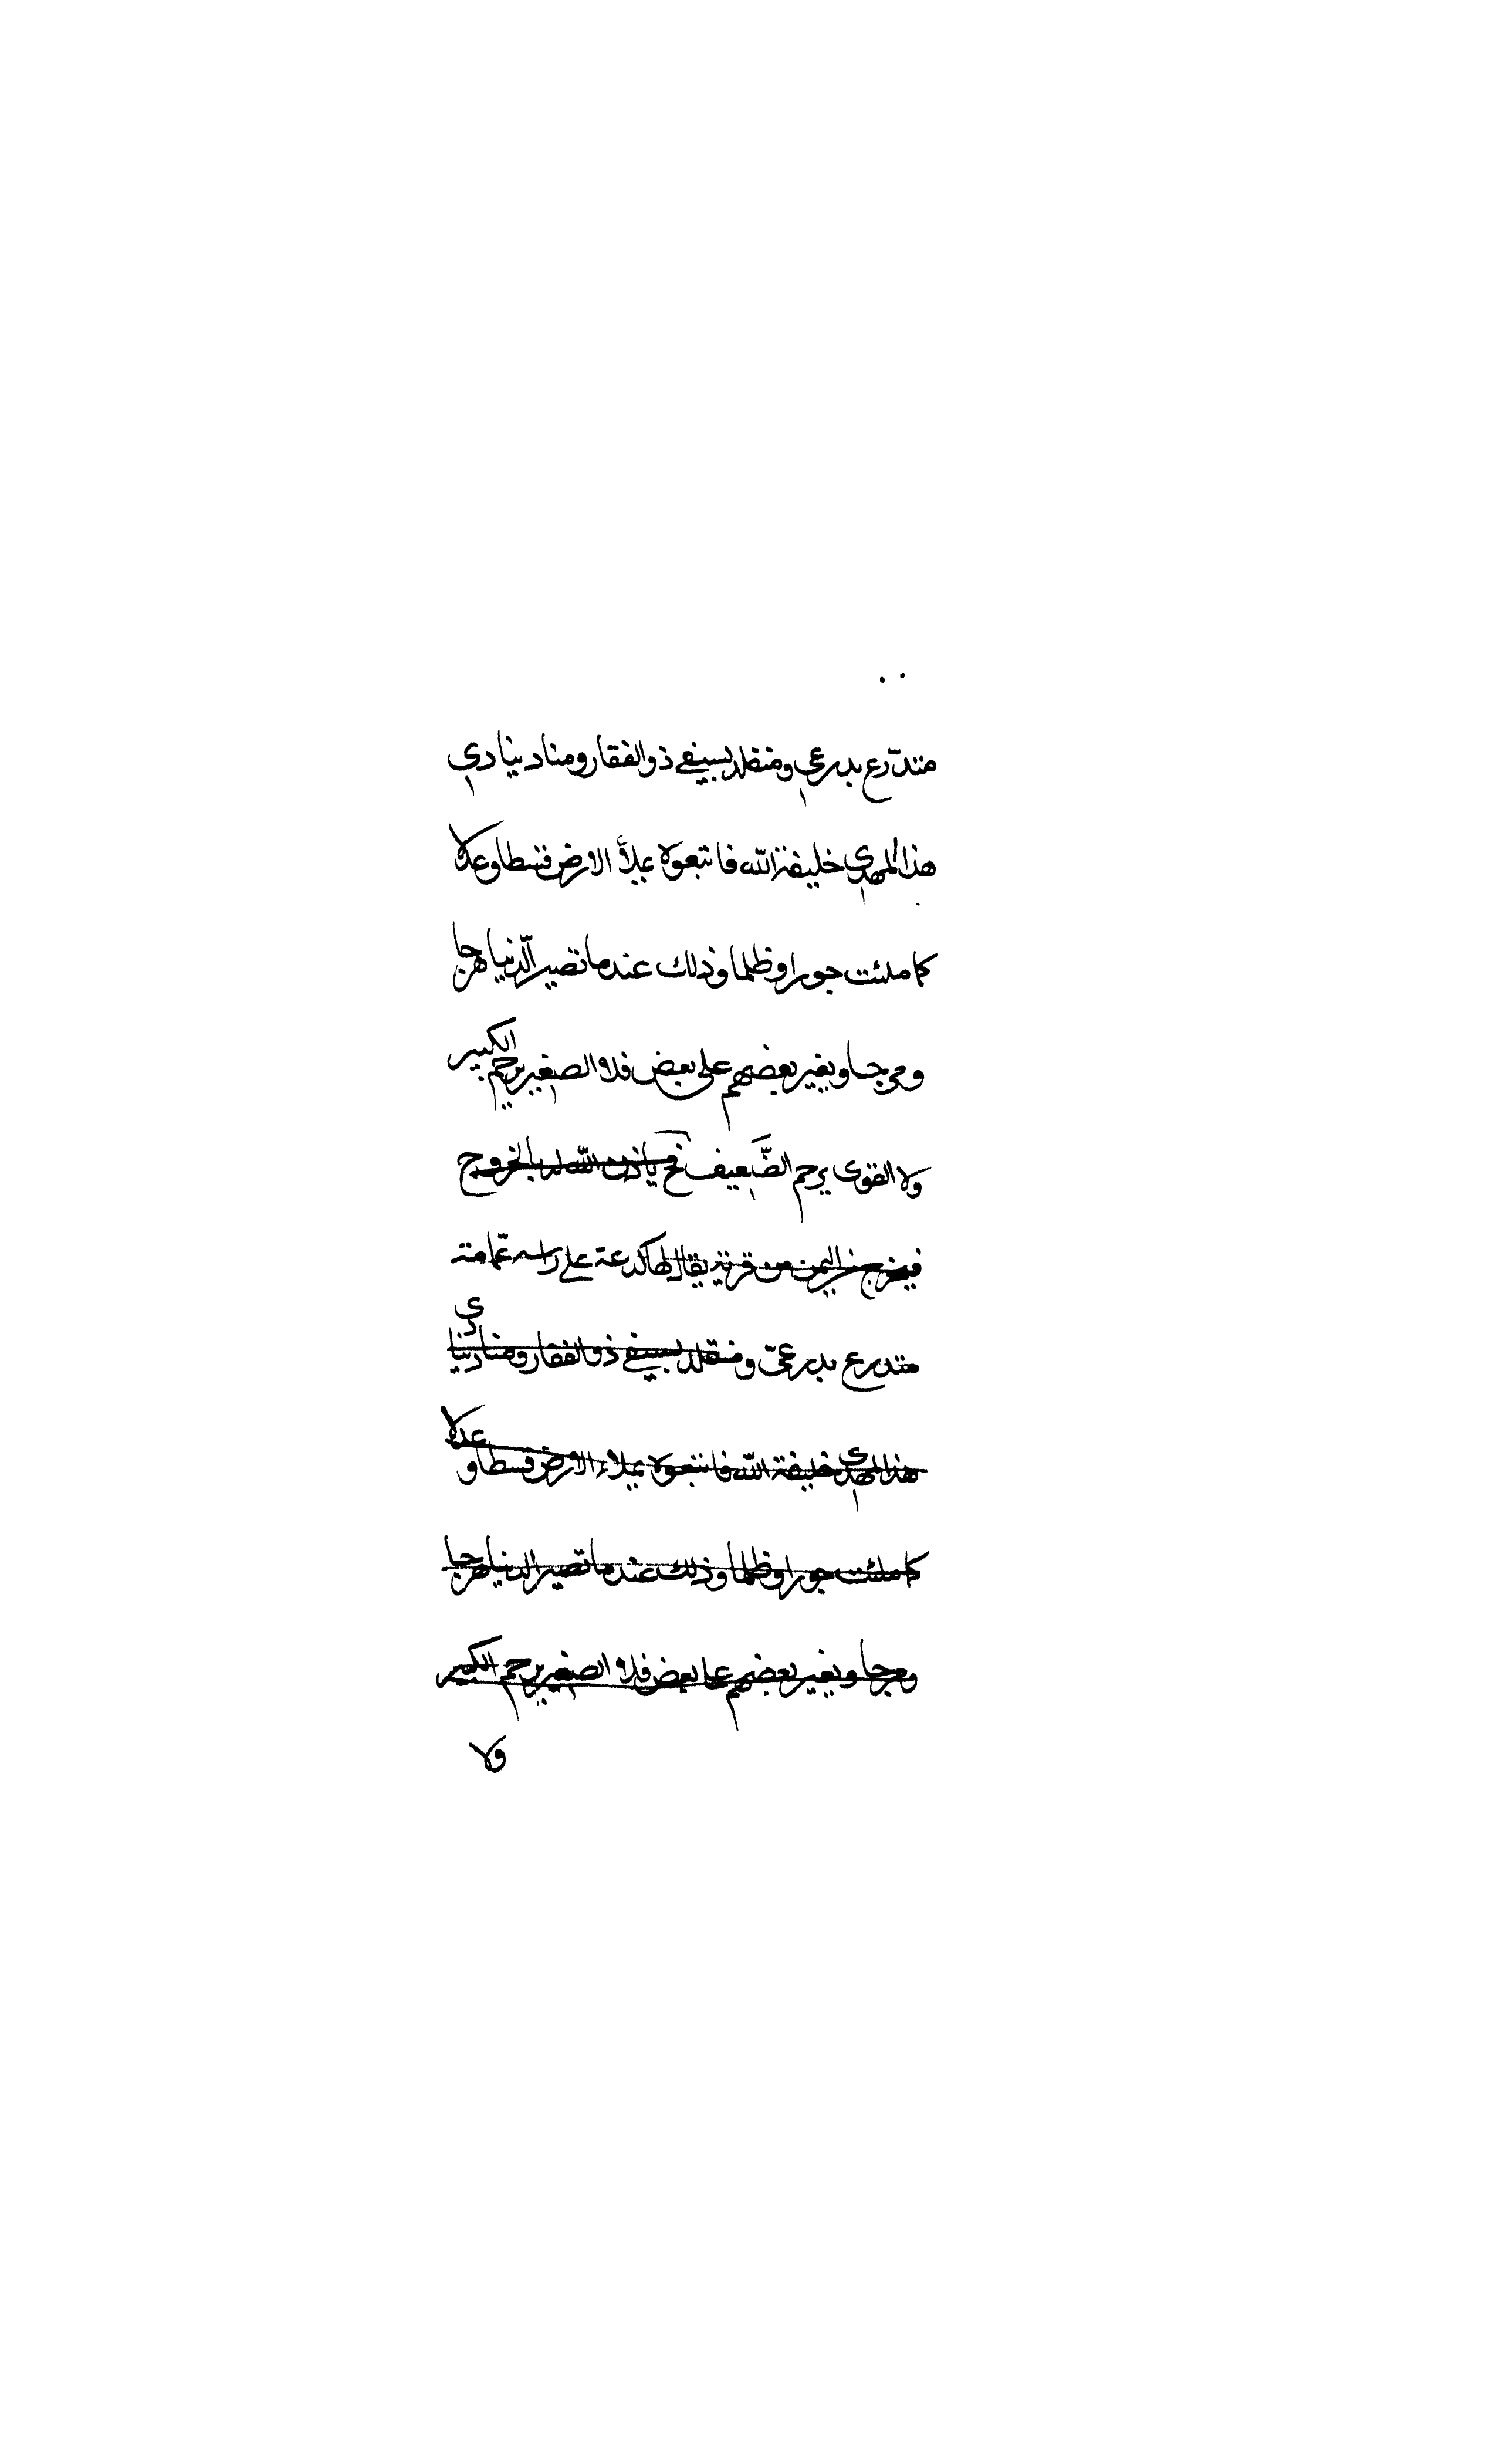 متدّرع بدرعي ومتقلد بسيفي ذو الفقار ومناد ينادي
هذا المهدي خليفة الله فاتبعوه يملأ الارض قسطا وعدلا
كما ملئت جورا وظلما وذلك عند ما تصير الّدنيا هرجا
ومرجا ويغير بعضهم على بعض فلا الصغير يرحم الكبير
ولا القوى يرحم الضَّعيف فح ياذن الله له بالخروج
فيخرج من اليمن من قرية يقال لها كدعة على راسه عمامته
متدرع بدرعيّ ومتقلد بسيفي ذو الفقار ومناد ينادي
هذا المهدي خليفة الله فاتبعوه يملاء الارض قسطا وعدلا
كما ملئت جورا وظلما وذلك عند ما تصير الدنيا هرجا
ومرجا ويغير بعضهم على بعض فلا الصغير يرحم الكبير
ولا